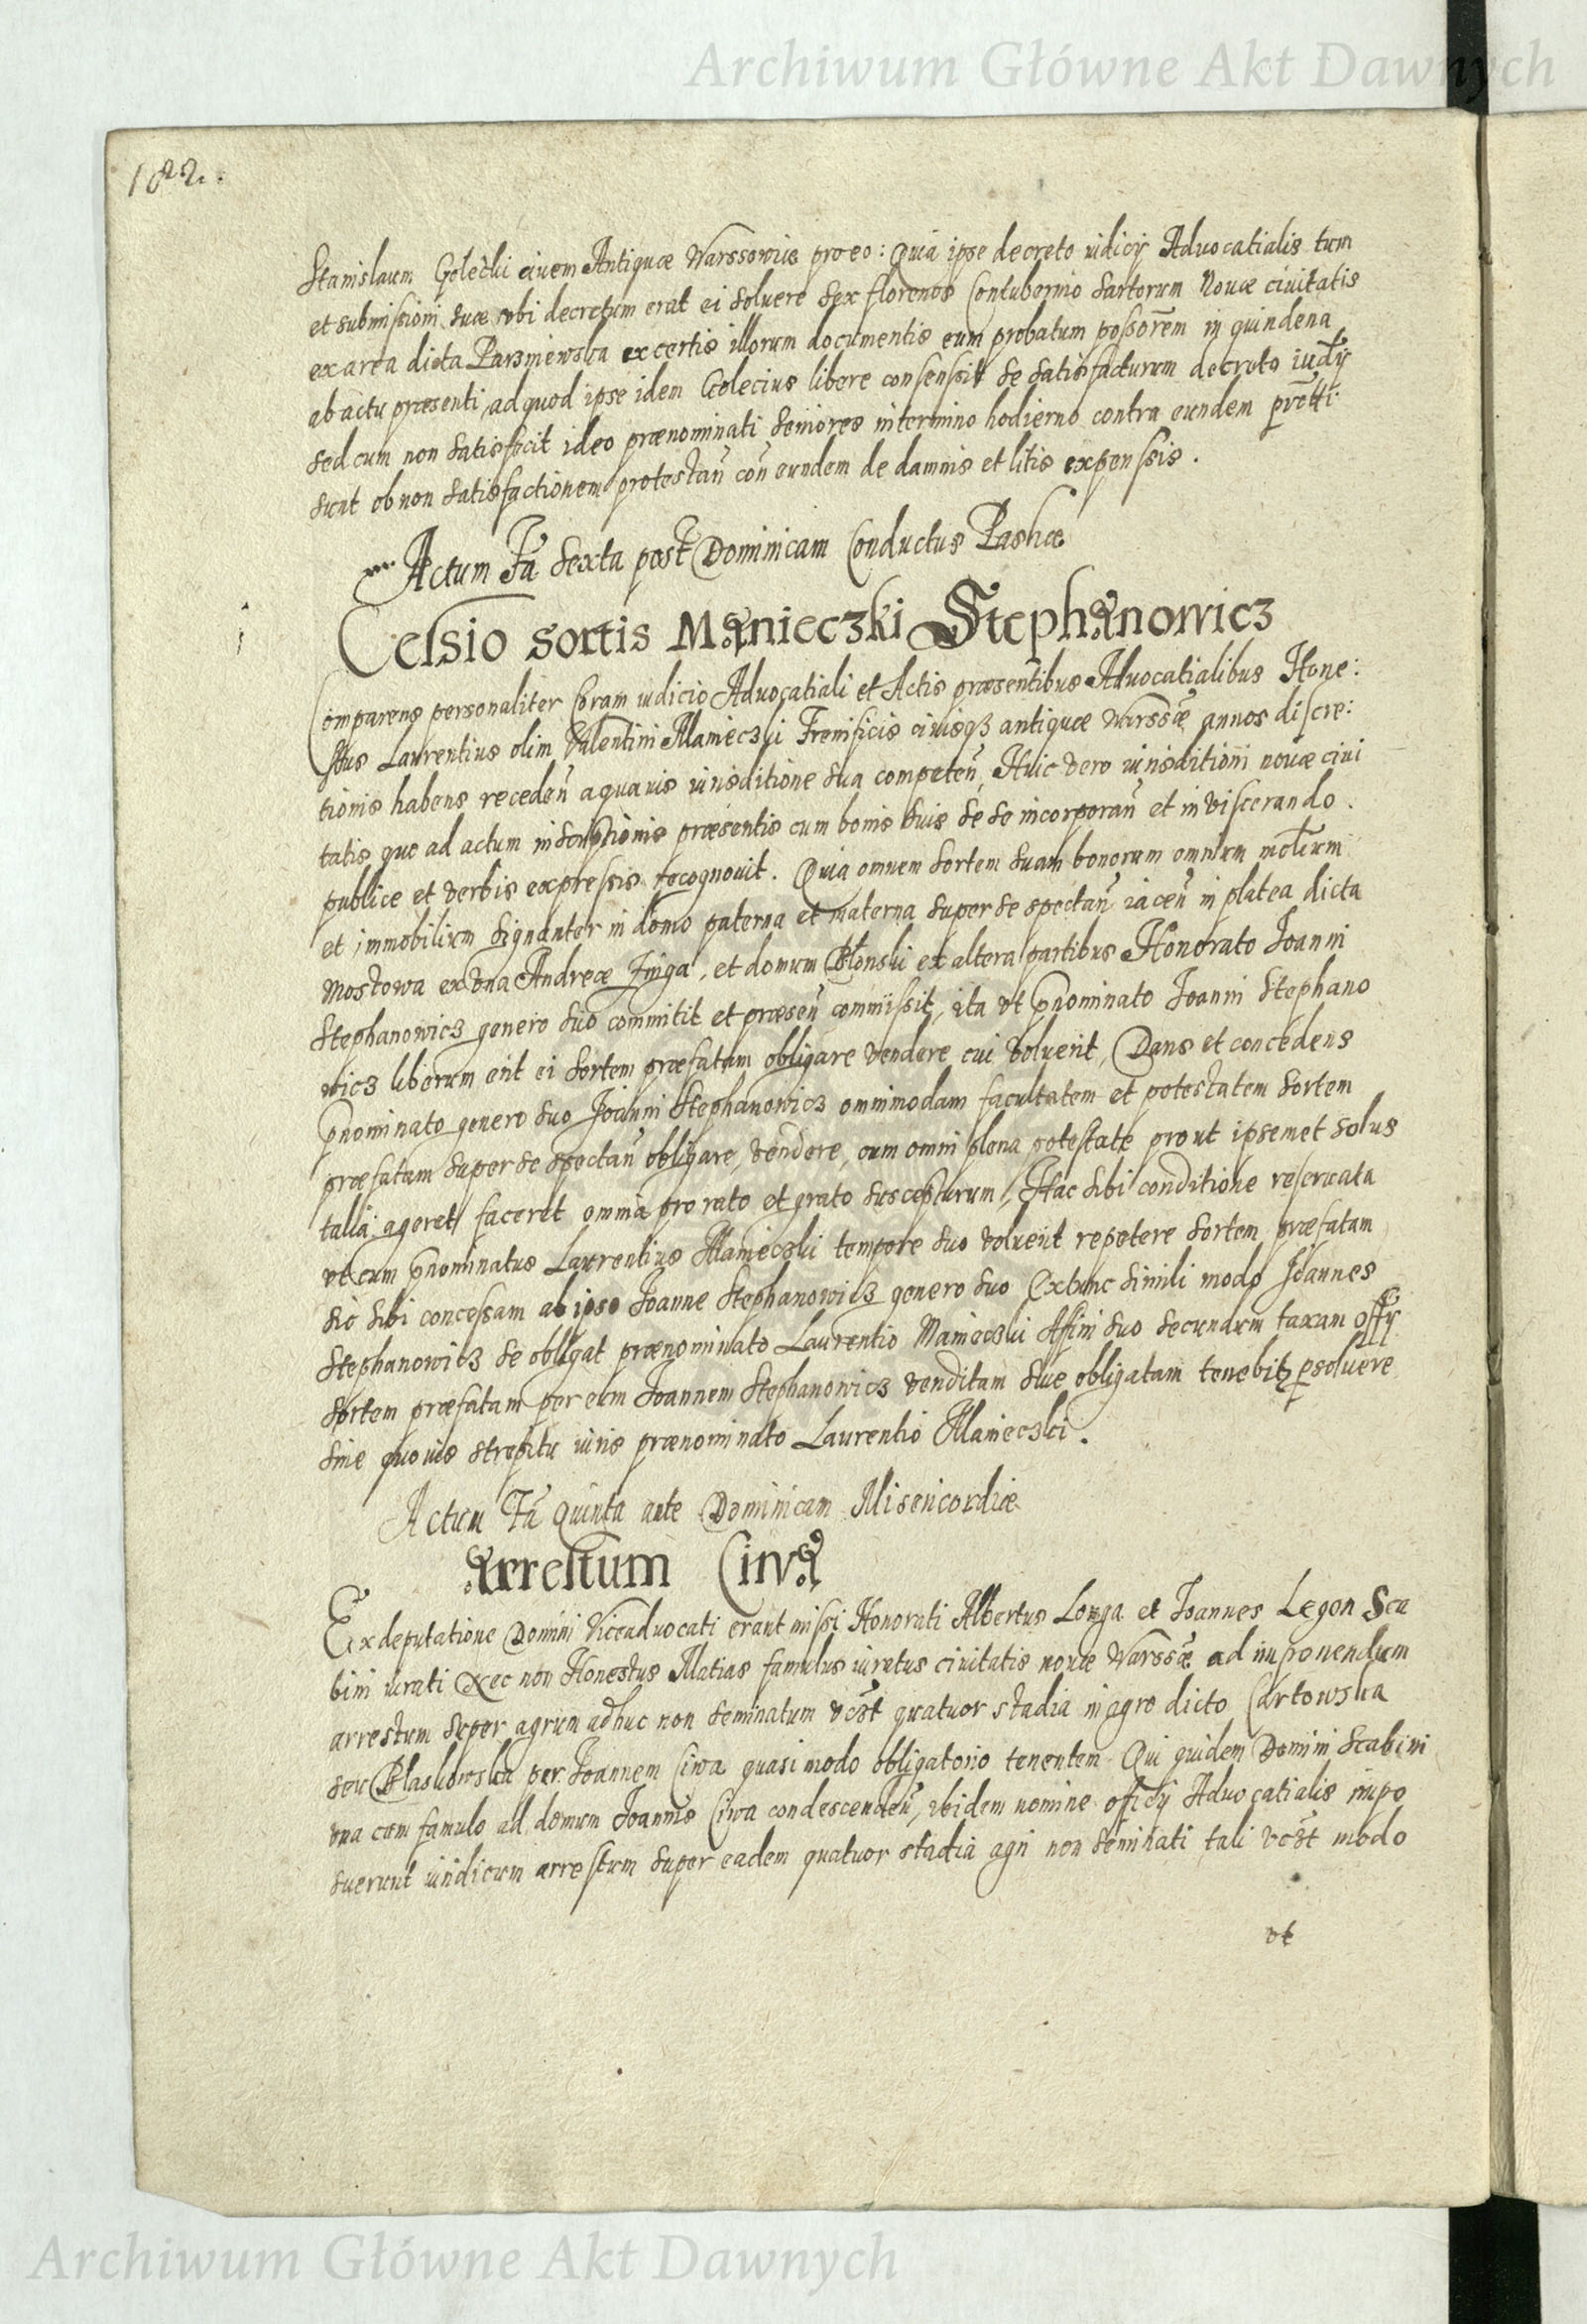 Archiwum Główne Akt Dawnych
1622.
Stanislaum Golecki ciuem Antiquæ Warssowiæ pro eo: Quia ipse decreto iudicÿ Aduocatialis tum
et submissioni suæ vbi decretum erat ei soluere sex florenos Contubernio Sartorum Nouæ ciuitatis
ex area dicta Parzniewska ex certis illorum documentis eum probatum possorem in quindena
ab actu præsenti, ad quod ipse idem Golecius libere consensit se satisfacturum decreto iudÿ
sed cum non satisfecit ideo prænominati Seniores in termino hodierno contra eundem
sunt ob non satisfactionem protestan con eundem de damnis et litis expensis.
Actum Fa Sexta post Dominicam Conductus Paschæ
Celsio sortis Manieczki Stephanowicz
Comparens personaliter Coram iudicio Aduocatiali et Actis præsentibus Aduocatialibus Hone:
stus Laurentius olim Valentini Manieczki Frenificis ciuisqz antiquæ Warssæ annos discre:
tionis habens receden a quauis iurisditione sua competen, Huic vero iurisditioni nouæ ciui
tatis quo ad actum inscriptionis præsentis cum bonis suis se se incorporan et inviscerando.
publice et verbis expressis recognouit. Quia omnem sortem suam bonorum omnium mobium
et immobilium signanter in domo paterna et materna super se spectan iacen in platea dicta
Mostowa ex vna Andreæ Jwiga, et domum Blonski ex altera partibus Honorato Ioanni
Stephanowicz genero suo committit et præsen commissit, ita vt pnominato Ioanni Stephano
wicz liberum erit ei sortem præfatam obligare vendere cui voluerit, Dans et concedens
pnominato genero suo Joanni Stephanowicz omnimodam facultatem et potestatem sortem
præfatam super se spectan obligare, vendere, cum omni plena potestate prout ipsemet solus
talia ageret faceret omnia pro rato et grato suscepturum, Hac sibi conditione reseruata
vt cum pnominatus Laurentius Manieczki tempore suo voluerit repetere sortem præfatam
sic sibi concessam ab ipso Joanne Stephanowicz genero suo Extunc simili modo Joannes
Stephanowicz se obligat prænominato Laurentio Manieczki Affini suo secundum taxam offÿ
sortem præfatam per eum Joannem Stephanowicz venditam siue obligatam tenebitz psoluere
sine quouis strepitu iuris prænominato Laurentio Manieczki.
Actum Fa Quinta ante Dominicam Misericordiæ
Arrestum Ciwa
Ex deputatione Domini Viceaduocati erant missi Honorati Albertus Longa et Joannes Legon Sca
bini iurati Nec non Honestus Matias famulus iuratus ciuitatis nouæ Warssæ ad imponendum
arrestum super agrum adhuc non seminatum vczt quatuor stadia in agro dicto Cartowska
seu Blaskowska per Joannem Ciwa quasi modo obligatorio tenentem Qui quidem Domini Scabini
vna cum famulo ad domum Joannis Ciwa condescenden, ibidem nomine officÿ Aduocatialis impo
suerunt iuridicum arrestum super eadem quatuor stadia agri non seminati tali vczt modo
vt
Archiwum Główne Akt Dawnych